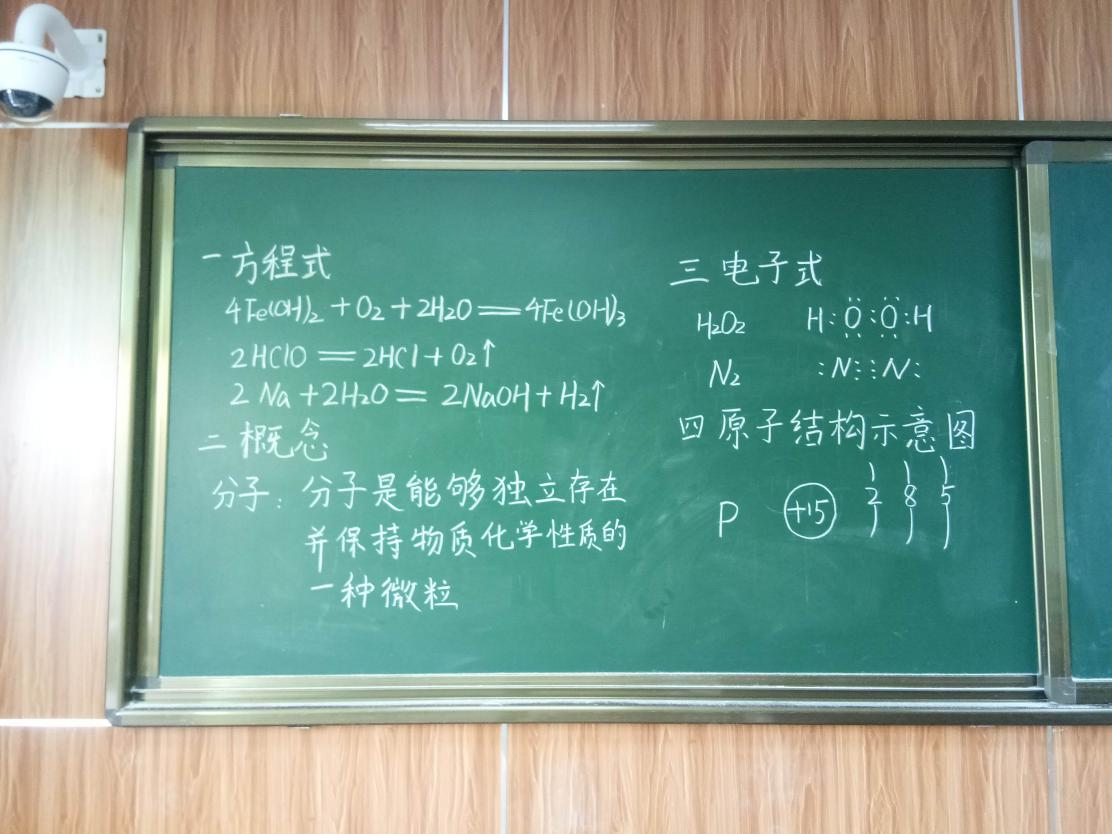 一 方程式
4Fe(OH)₂ + O₂ + 2H₂O == 4Fe(OH)₃
2HClO == 2HCl + O₂↑
2Na + 2H₂O == 2NaOH + H₂↑
二 概念
分子：分子是能够独立存在
并保持物质化学性质的
一种微粒
三 电子式
H₂O₂ H:Ö:Ö:H
N₂ :N⋮⋮N:
四 原子结构示意图
P +15 2 8 5